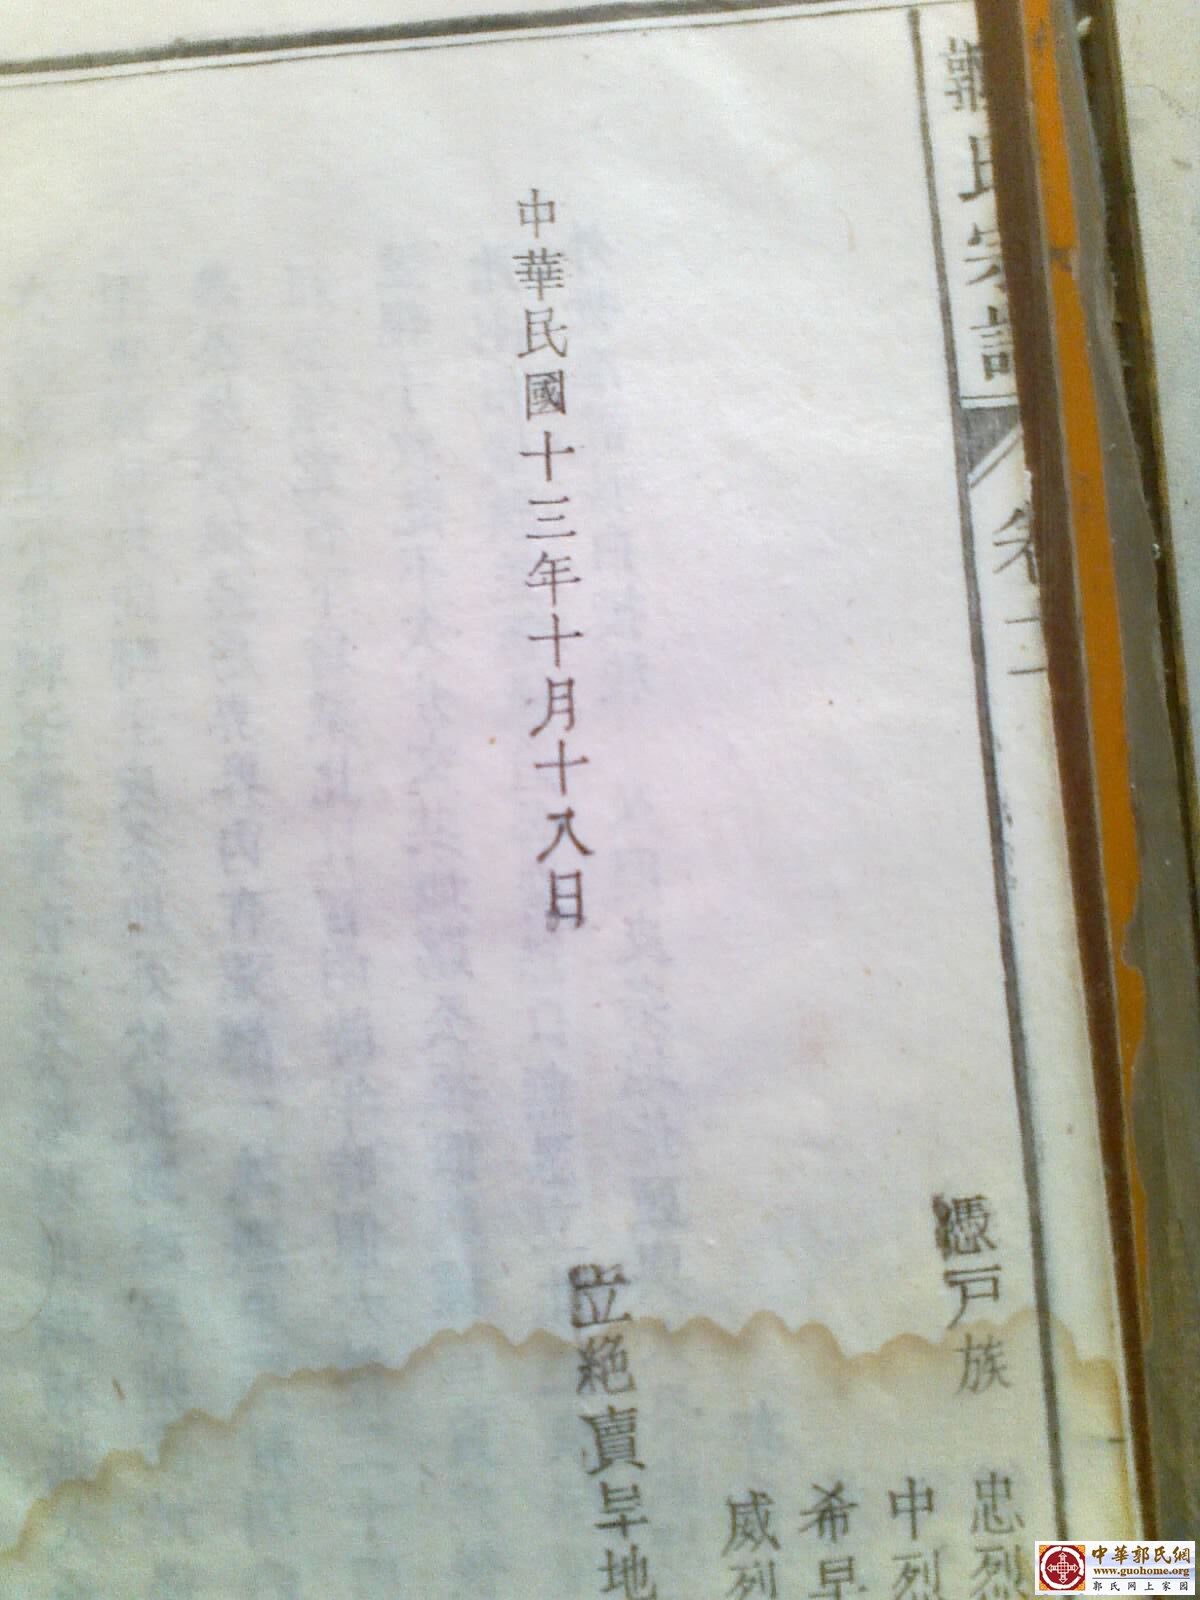 氏宗譜
卷二
憑戸族
忠烈
中烈
希早
威烈
中華民國十三年十月十八日
立絕賣旱地
中華郭氏網
www.guohome.org
郭氏网上家园